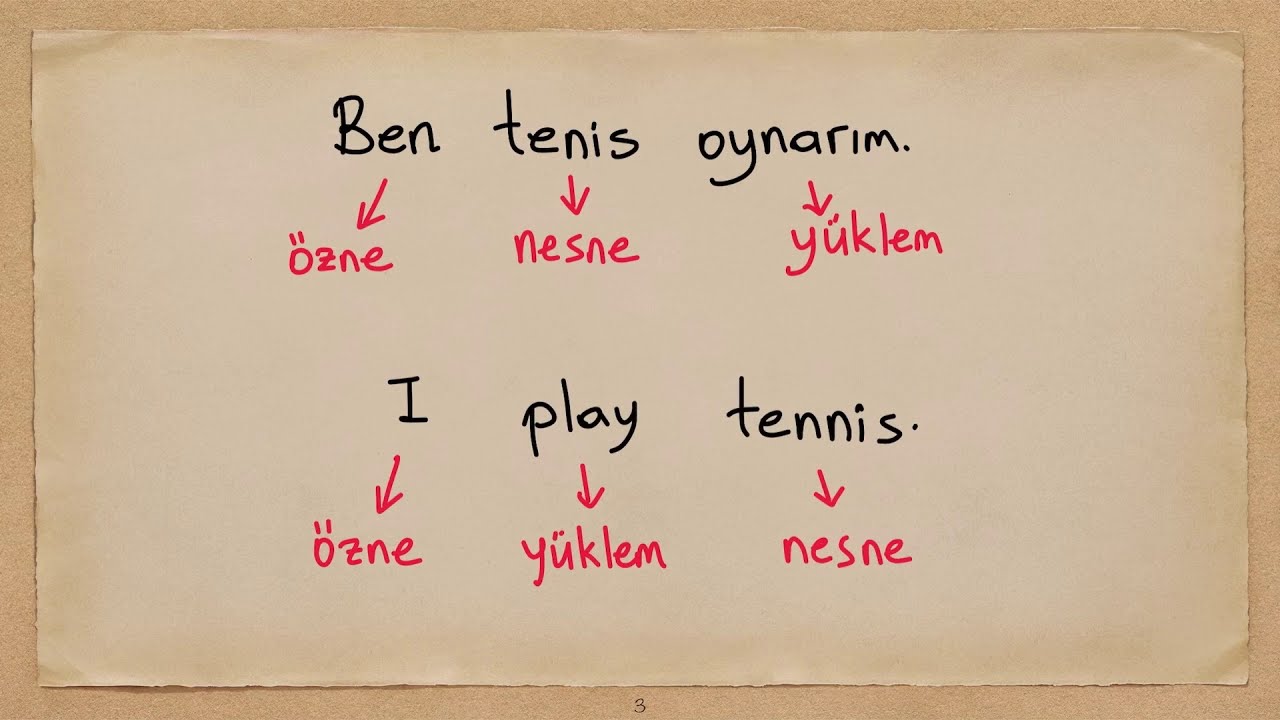 Ben tenis oynarım.
özne nesne yüklem
I play tennis.
özne yüklem nesne
3